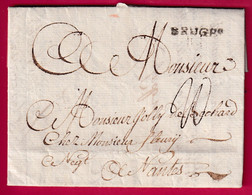 BRUGES
Monsieur
Monsieur Jolly de
Chez Monsieur Fleury
Negt
a Nantes